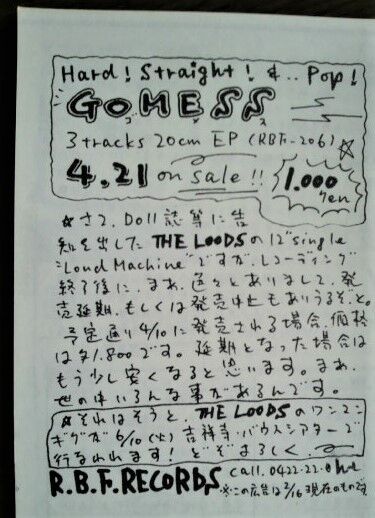 Hard! Straight! &.. Pop!
GOMESS
ゴメス
3 tracks 20cm EP (RBF-206)
4.21 on sale!!
1.000 Yen
☆さて、Doll誌等に告
知を出した THE LOODSの12"single
"Loud Machine"ですが、レコーディング
終了後に、まあ、色々とありまして、発
売延期、もしくは発売中止もありうるぞ、と。
予定通り4/10に発売される場合、価格
は¥1.800です。延期となった場合は
もう少し安くなると思います。まあ、
世の中いろんな事があるんです。
☆それはそうと、THE LOODSのワンマン
ギグが6/10(火)吉祥寺・バウスシアターで
行なわれます! どぞよろしく.
R.B.F. RECORDS call. 0422-22-
※この広告は2/16現在のものです